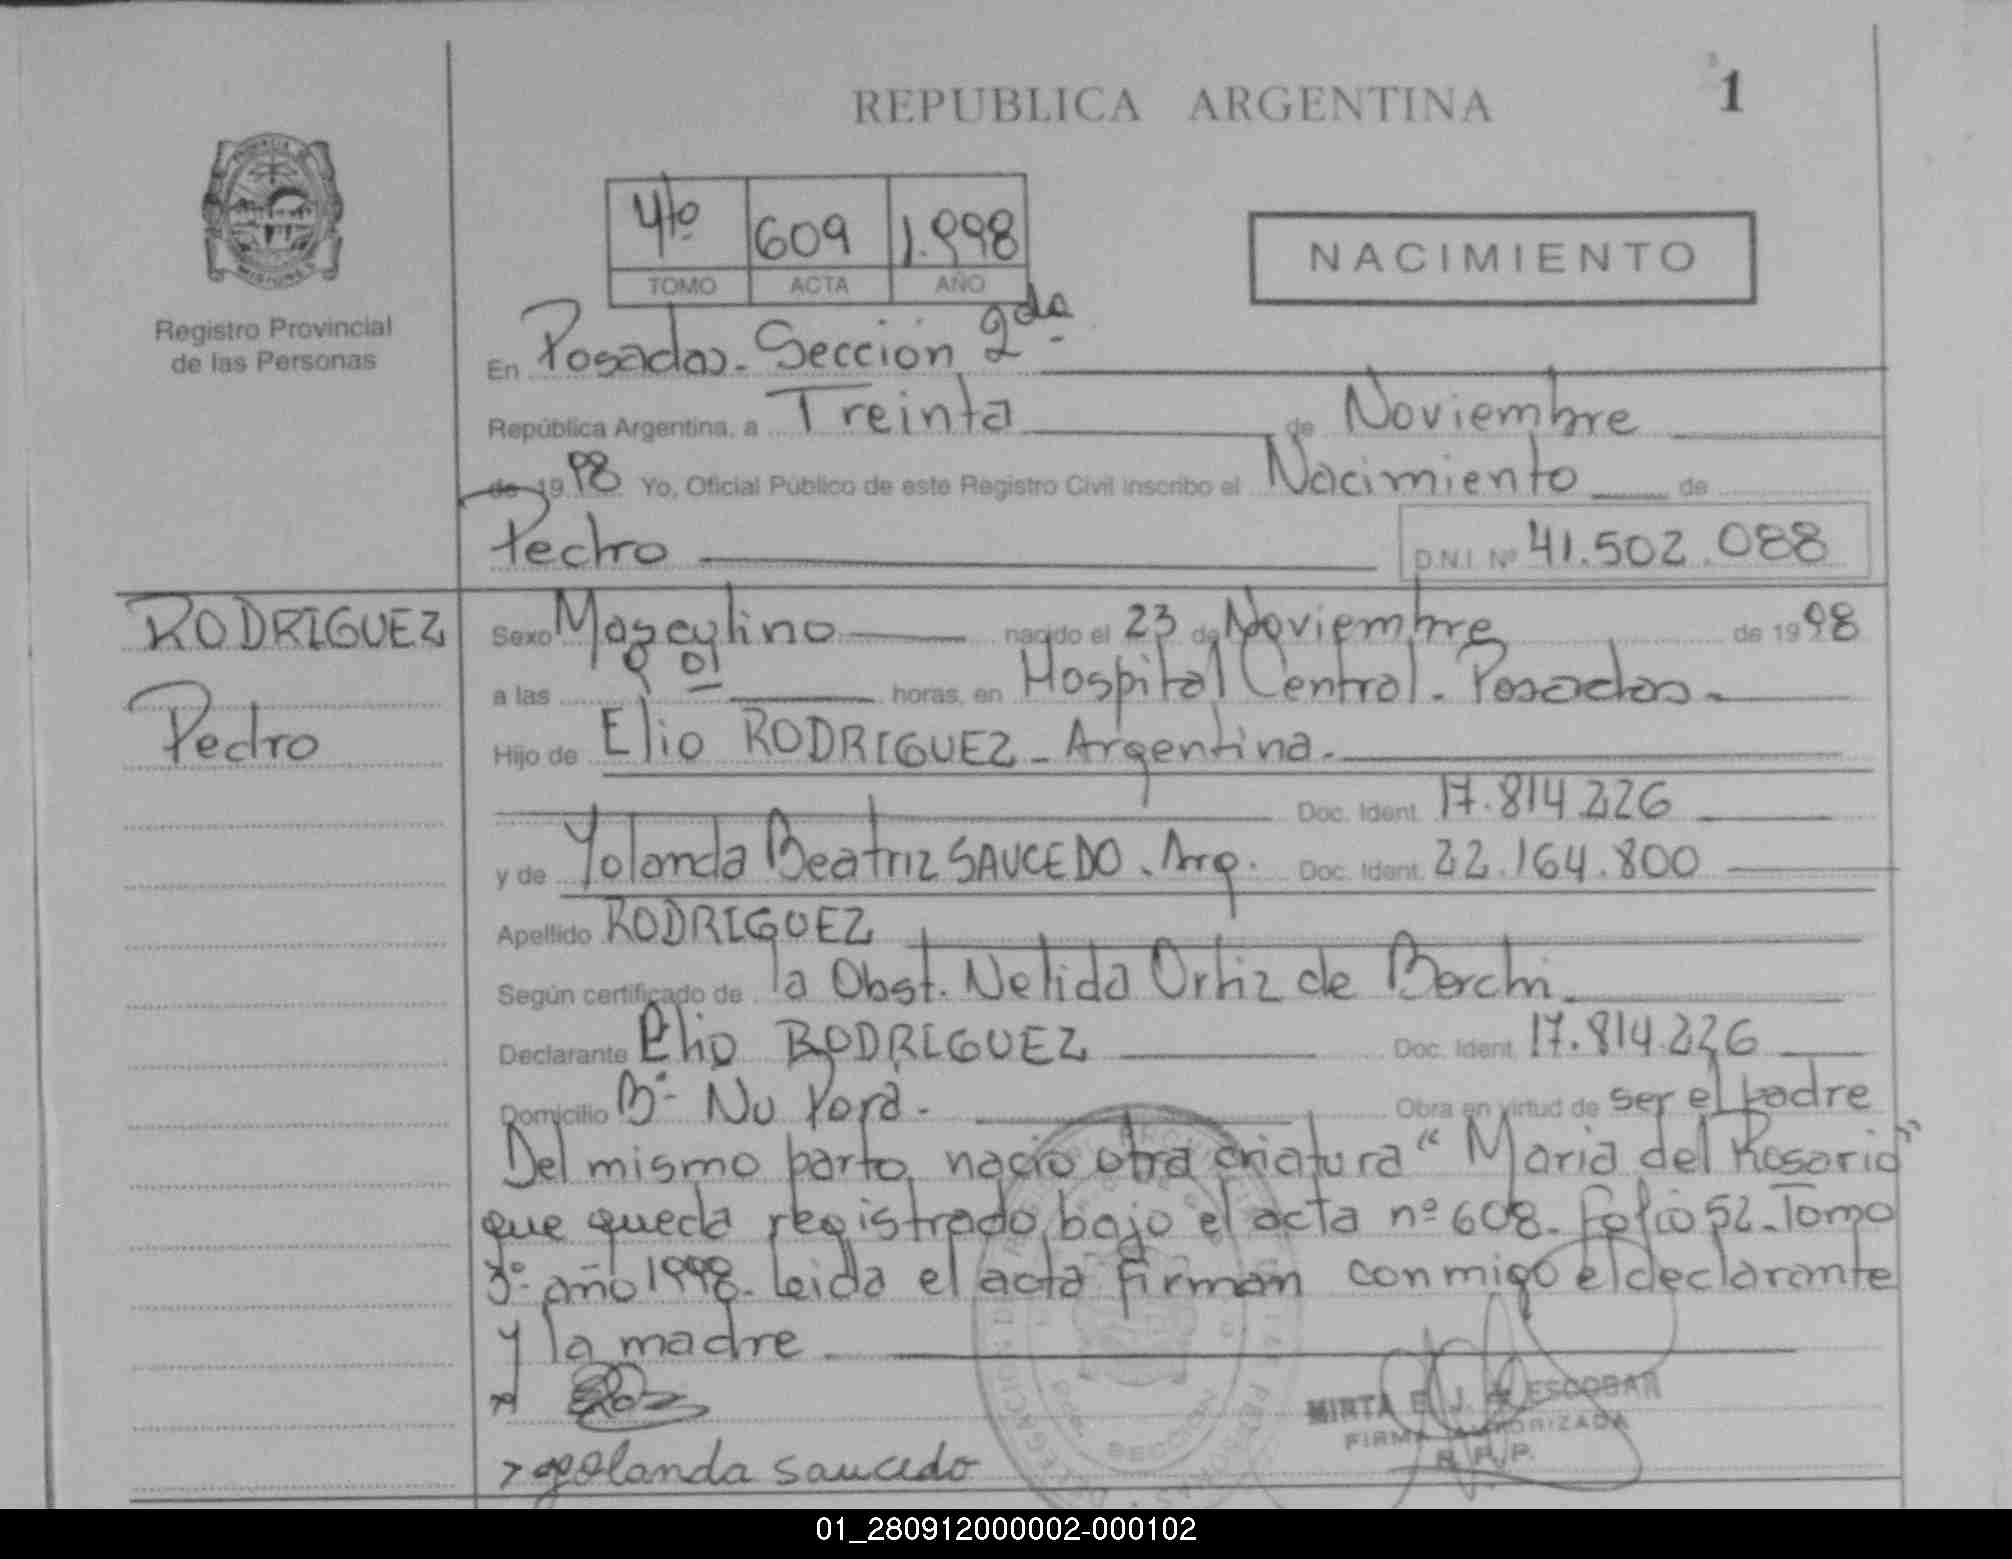 REPUBLICA ARGENTINA
1
4to 609 1.998
TOMO ACTA AÑO
NACIMIENTO
MISIONES
Registro Provincial
de las Personas
En Posadas. Sección 2da
República Argentina, a Treinta de Noviembre
de 1998 Yo, Oficial Público de este Registro Civil inscribo el Nacimiento de
Pedro D.N.I. Nº 41.502.088
RODRIGUEZ
Pedro
Sexo Masculino nacido el 23 de Noviembre de 1998
a las 9 01 horas, en Hospital Central. Posadas
Hijo de Elio RODRIGUEZ - Argentina.
Doc. Ident. 17.814.226
y de Yolanda Beatriz SAUCEDO. Arg. Doc. Ident. 22.164.800
Apellido RODRIGUEZ
Según certificado de la Obst. Nelida Ortiz de Berchi
Declarante Elio RODRIGUEZ Doc. Ident. 17.814.226
Domicilio Bº Ñu Porá. Obra en virtud de ser el padre
Del mismo parto nació otra criatura "Maria del Rosario"
que queda registrado bajo el acta nº 608. Folio 52. Tomo
3º año 1998. Leida el acta firman conmigo el declarante
y la madre
yolanda saucedo
MIRTA E. J. ESCOBAR
FIRMA AUTORIZADA
R. P. P.
SECCION
01_280912000002-000102